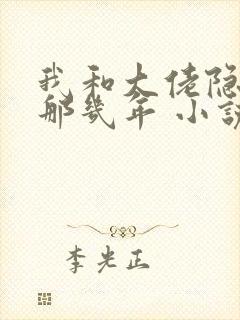 我和大佬隐
那几年 小说
李光正